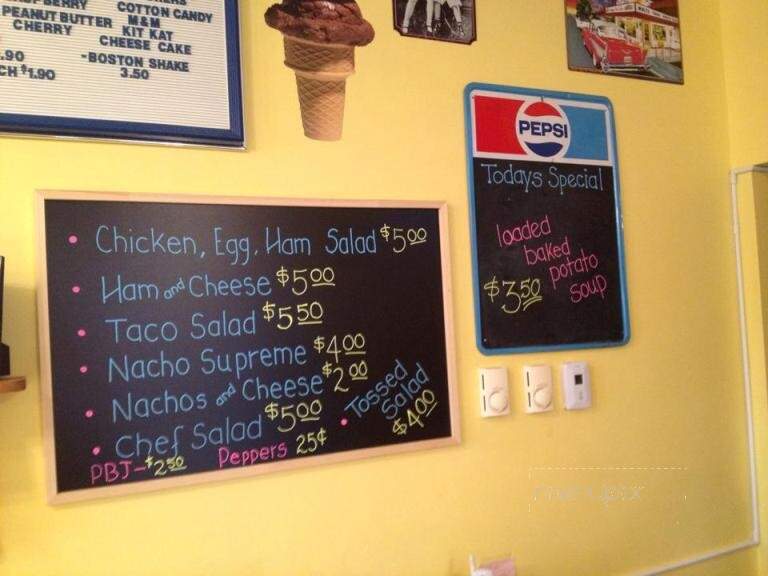 COTTON CANDY
PEANUT BUTTER M&M
CHERRY KIT KAT
CHEESE CAKE
.90 -BOSTON SHAKE
$1.90 3.50
PEPSI
Todays Special
loaded
baked
potato
soup
$3.50
• Chicken, Egg, Ham Salad $5.00
• Ham and Cheese $5.00
• Taco Salad $5.50
• Nacho Supreme $4.00
• Nachos and Cheese $2.00
• Chef Salad $5.00
• Tossed
Salad
$4.00
PBJ-$2.50 Peppers 25¢